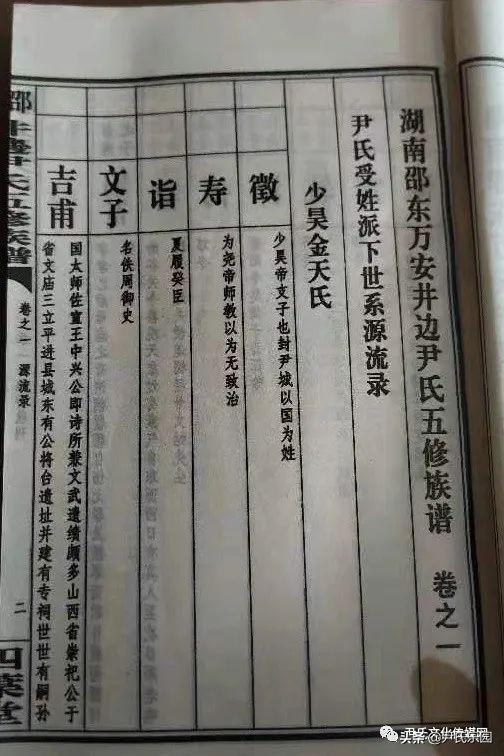 湖南邵东万安井边尹氏五修族谱 卷之一
尹氏受姓派下世系源流录
少昊金天氏
徵
少昊帝支子也封尹城以国为姓
寿
为尧帝师教以为无致治
诣
夏履癸臣
文子
名佚周御史
吉甫
国太师佐宣王中兴公即诗所兼文武遗绩颇多山西省崇祀公于
省文庙三立平进县城东有公将台遗址并建有专祠世世有嗣孙
氏五修族谱
卷之一
源流录
二
四业堂
尹氏文化传媒网
头条@尹氏乐园